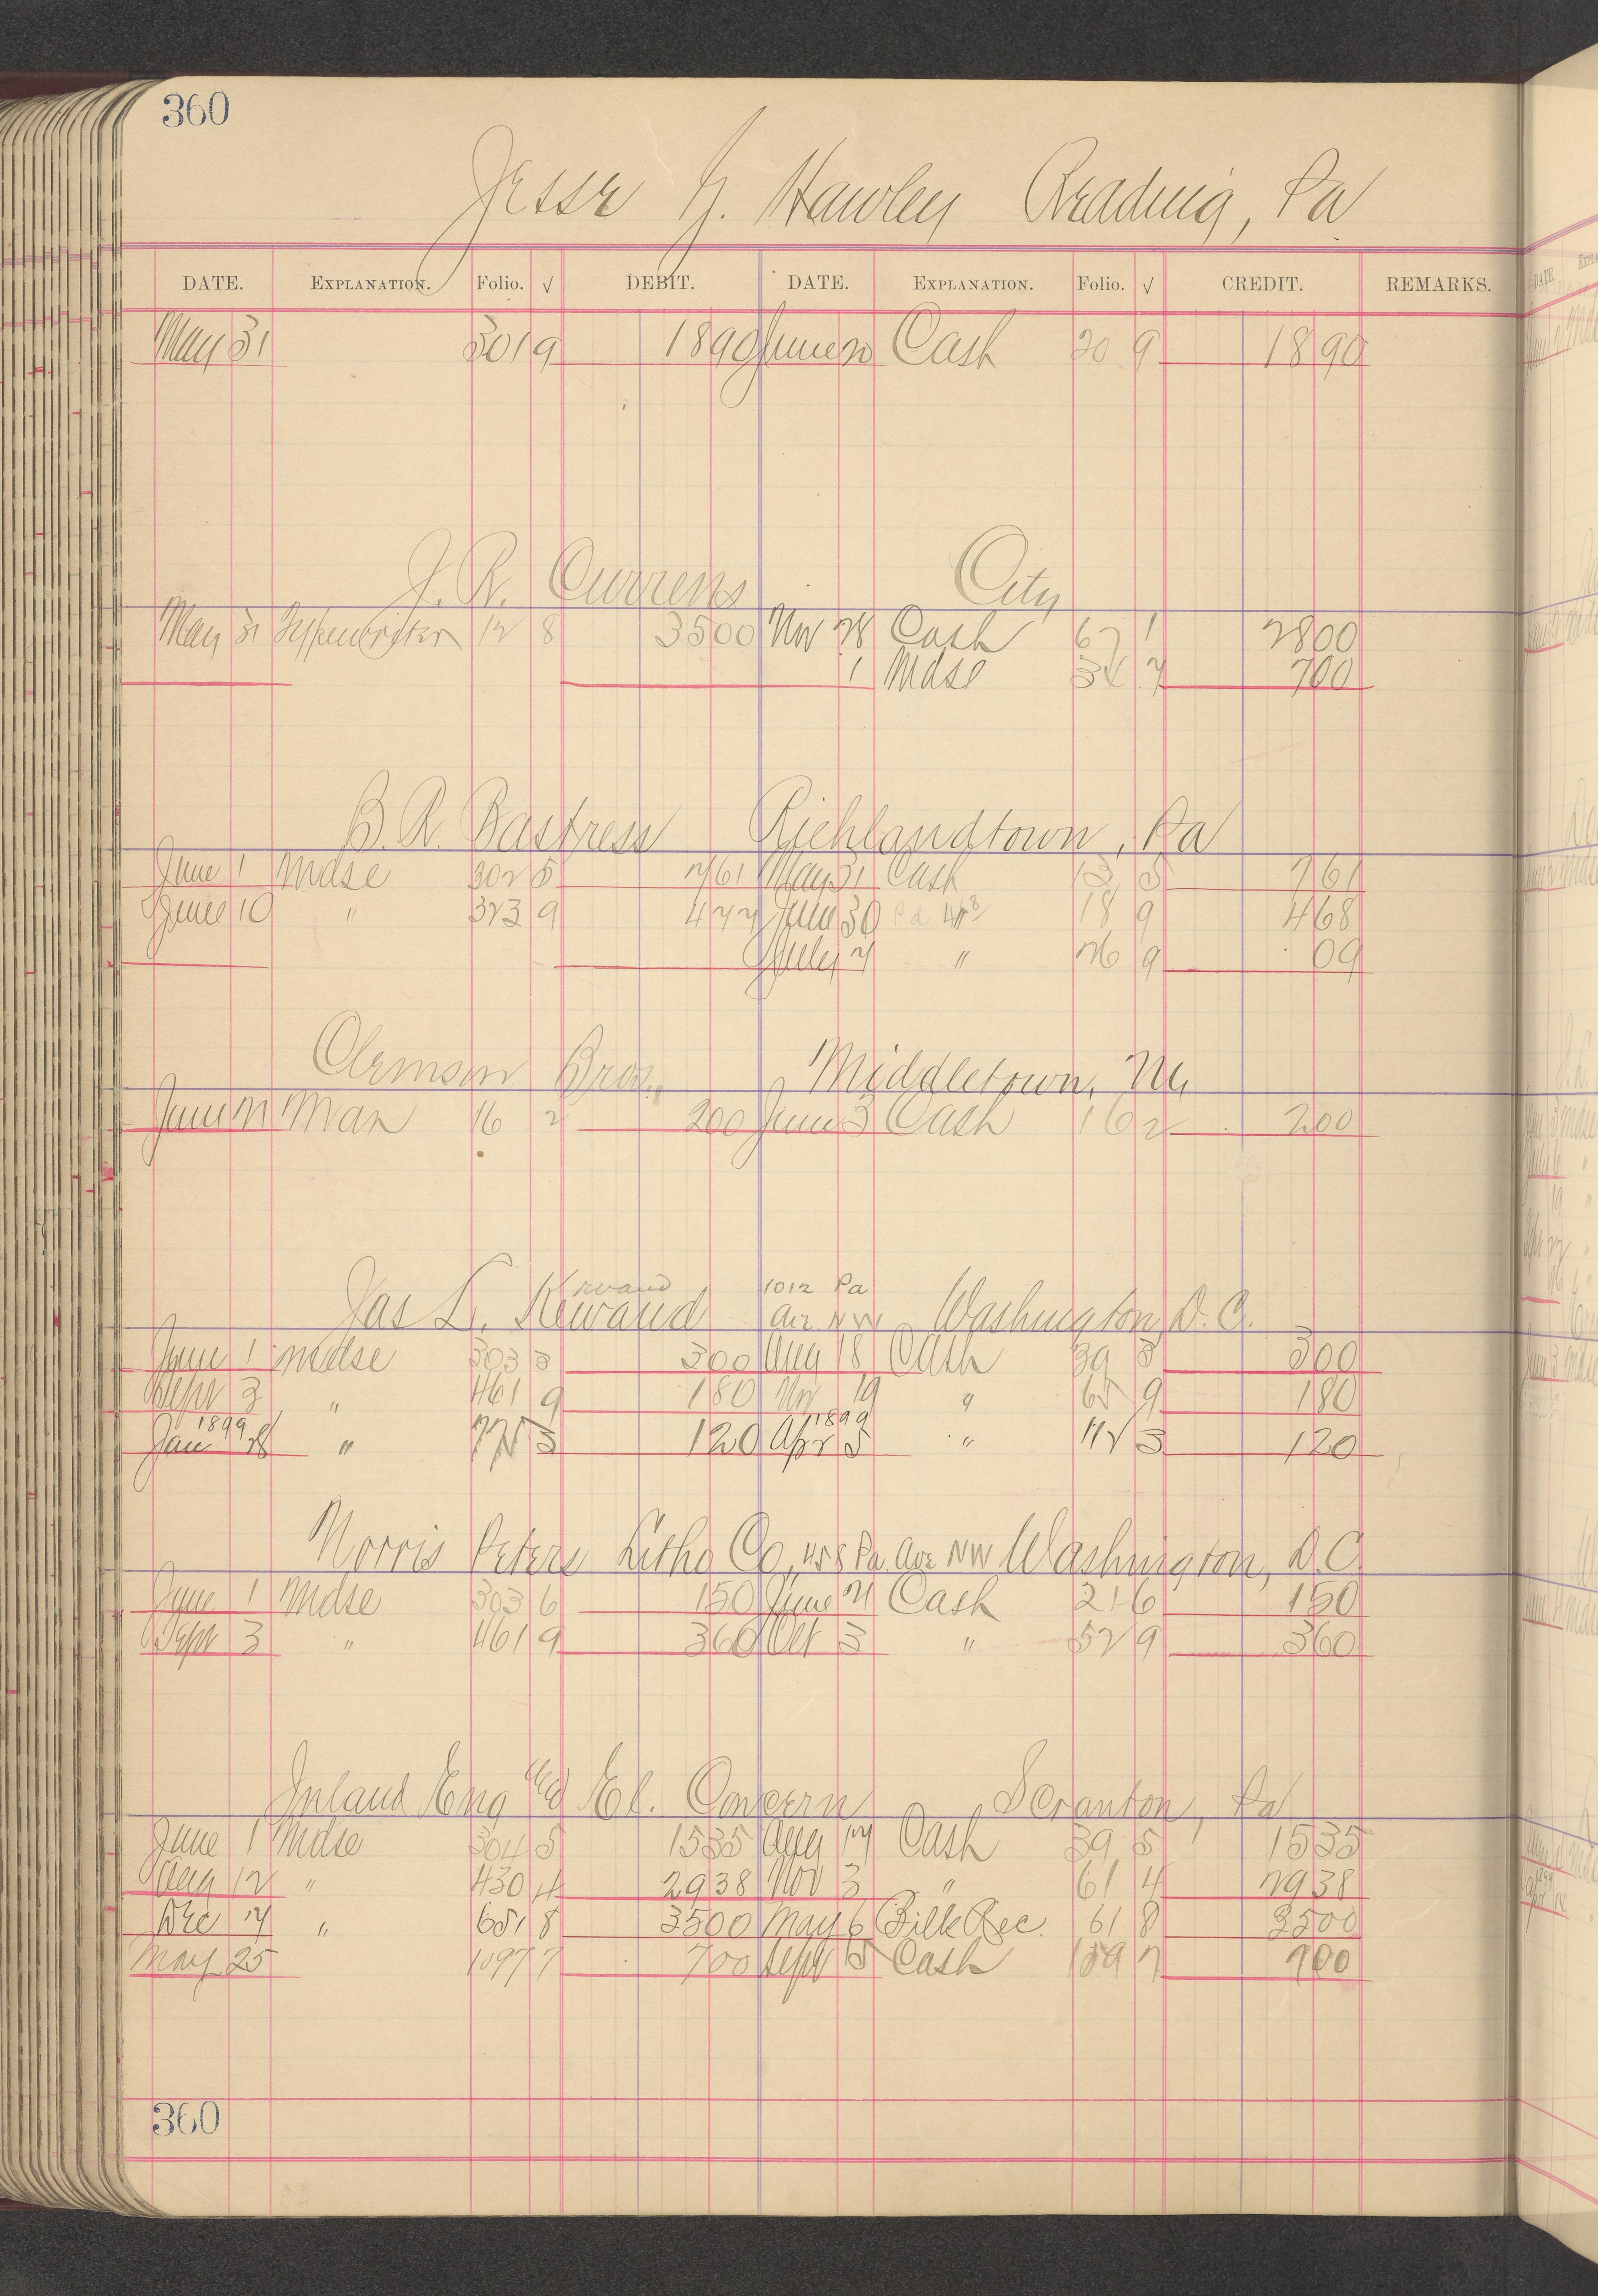 360
Jesse G. Hawley Reading, Pa
DATE. EXPLANATION. Folio. √ DEBIT. DATE. EXPLANATION. Folio. √ CREDIT. REMARKS.
May 31 301 9 18 90 June Cash 20 9 18 90
J. R. Currens City
May 31 Typewriter 12 8 35 00 Nov 28 Cash 67 1 28 00
1 Mdse 7 7 00
B. R. Bastress Richlandtown, Pa
June 1 Mdse 302 5 7 61 May 31 Cash 13 5 7 61
June 10 " 323 9 4 77 June 30 18 9 4 68
July 7 " 26 9 09
Clemson Bros. Middletown, NY
June Man 16 2 2 00 June 3 Cash 16 2 2 00
Jas L. Kervand 1012 Pa
Ave NW Washington, D.C.
June 1 Mdse 303 3 3 00 Aug 18 Cash 39 3 3 00
Sept 3 " 461 9 1 80 Nov 19 " 65 9 1 80
1899 1899
Jan 28 " 3 1 20 Apr 5 " 112 3 1 20
Norris Peters Litho Co, 458 Pa. Ave NW Washington, D.C.
June 1 Mdse 303 6 1 50 June 21 Cash 21 6 1 50
Sept 3 " 461 9 3 60 Oct 3 " 52 9 3 60
Inland Eng El. Concern Scranton, Pa
June 1 Mdse 304 5 15 35 Aug 17 Cash 39 5 15 35
Aug 12 " 430 4 29 38 Nov 3 " 61 4 29 38
Dec 14 " 651 8 35 00 May 6 Bills Rec. 61 8 35 00
May 25 1097 7 7 00 Sept 5 Cash 159 7 7 00
360